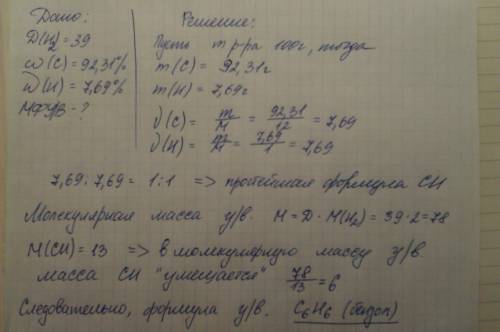 Дано:
D(H₂)=39
ω(C)=92,31%
ω(H)=7,69%
МФУ/В - ?
Решение:
Пусть m р-ра 100г, тогда
m(C) = 92,31г
m(H) = 7,69г
ν(C) = m/M = 92,31/12 = 7,69
ν(H) = m/M = 7,69/1 = 7,69
7,69 : 7,69 = 1:1 => простейшая формула CH
Молекулярная масса у/в. M = D · M(H₂) = 39·2=78
M(CH) = 13 => в молекулярную массу у/в.
масса CH "умещается" 78/13 = 6
Следовательно, формула у/в. C₆H₆ (бензол)